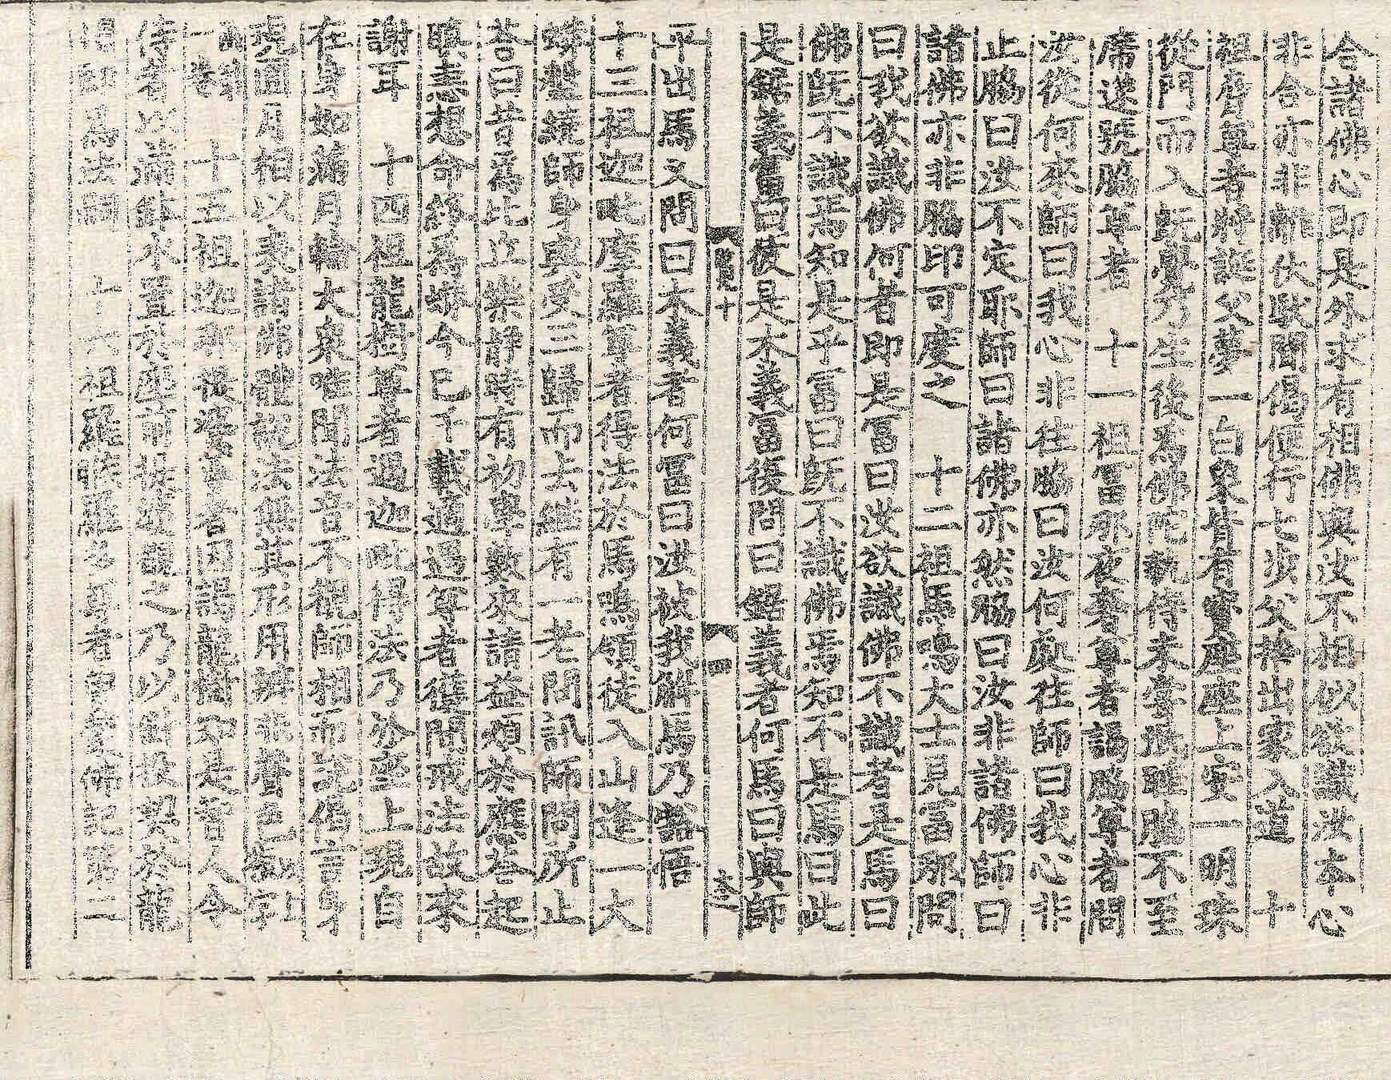 合諸佛心即是外求有相佛與汝不相似欲識汝本心
非合亦非離伏䭾聞偈便行七步父捨出家入道　十
祖脅尊者將誕父夢一白象背有寳座座上安一明珠
從門而入既覺乃生後爲佛陀執侍未嘗汦睡脇不至
席遂號脇尊者　十一祖冨那夜奢尊者謁脇尊者問
汝從何來師曰我心非往脇曰汝何處住師曰我心非
止脇曰汝不定耶師曰諸佛亦然脇曰汝非諸佛師曰
諸佛亦非脇印可度之　十二祖馬鳴大士見冨那問
曰我欲識佛何者即是冨曰汝欲識佛不識者是馬曰
佛既不識焉知是乎冨曰既不識佛焉知不是馬曰此
是鋸義冨曰彼是木義冨後問曰鋸義者何馬曰與師
十
一
平出馬又問曰木義者何冨曰汝被我解馬乃豁悟
十三祖迦毗摩羅尊者得法於馬鳴領徒入山逢一大
蟒盤繞師身與受三歸而去継有一老問訊師問所止
荅曰昔爲比丘樂靜時有初學數來請益煩於應荅起
瞋恚想命終爲蟒今已千載適遇尊者獲聞戒法故來
謝耳　十四祖龍樹尊者遇迦毗得法乃於座上現自
在身如滿月輪大衆唯聞法音不觀師相而説偈言身
現圓月相以表諸佛體説法無其形用辨非聲色
十五祖迦那提婆尊者因謁龍樹知是智人令
侍者以滿鉢水置於座前彼遂觀之乃以針投契於龍
樹即爲法嗣　十六祖羅睺羅多尊者　佛記第二